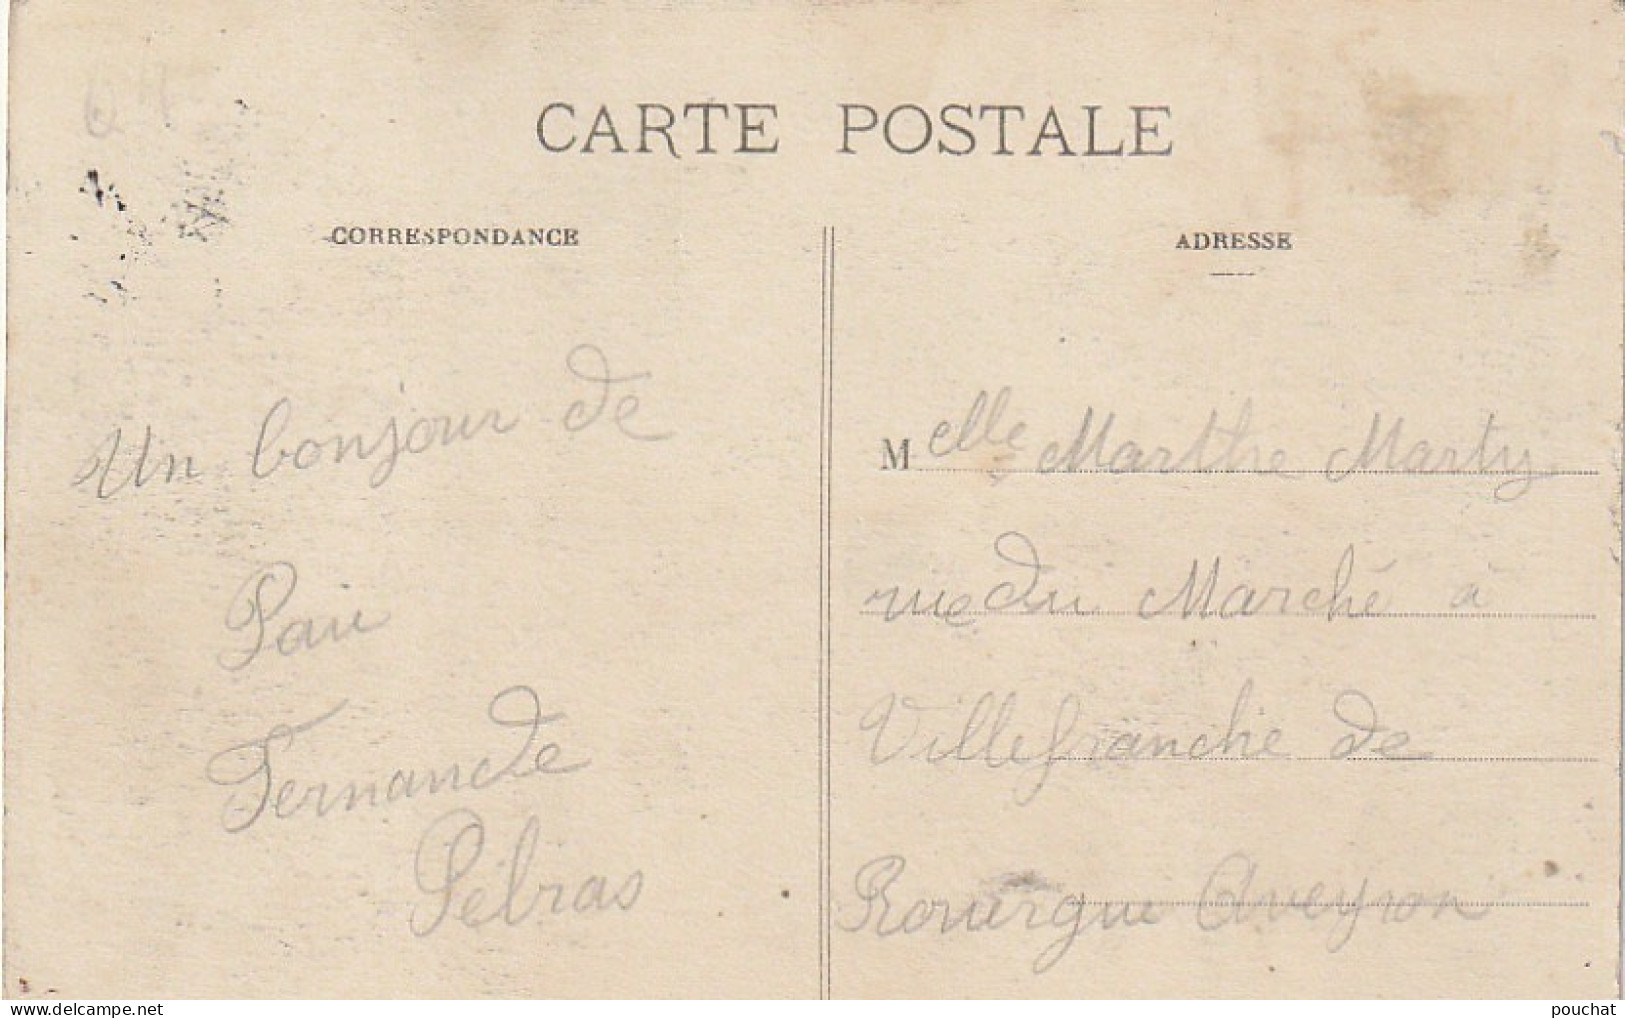 CARTE POSTALE
CORRESPONDANCE
ADRESSE
Un bonjour de
Pau
Fernande
Pébras
Melle Marthe Marty
rue du Marché à
Villefranche de
Rouergue Aveyron
www.delcampe.net
pouchat